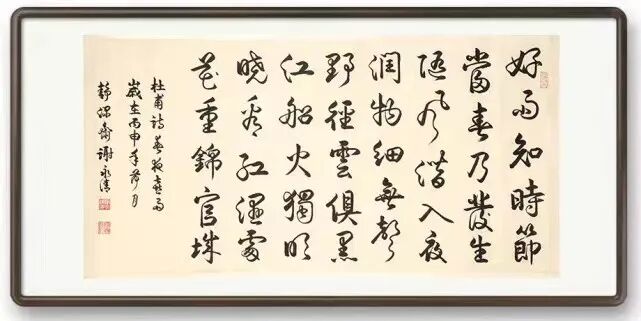 好雨知時節
當春乃發生
隨風潛入夜
潤物細無聲
野徑雲俱黑
江船火獨明
曉看紅濕處
花重錦官城
杜甫詩春夜喜雨
歲在丙申年月
靜齋謝永清